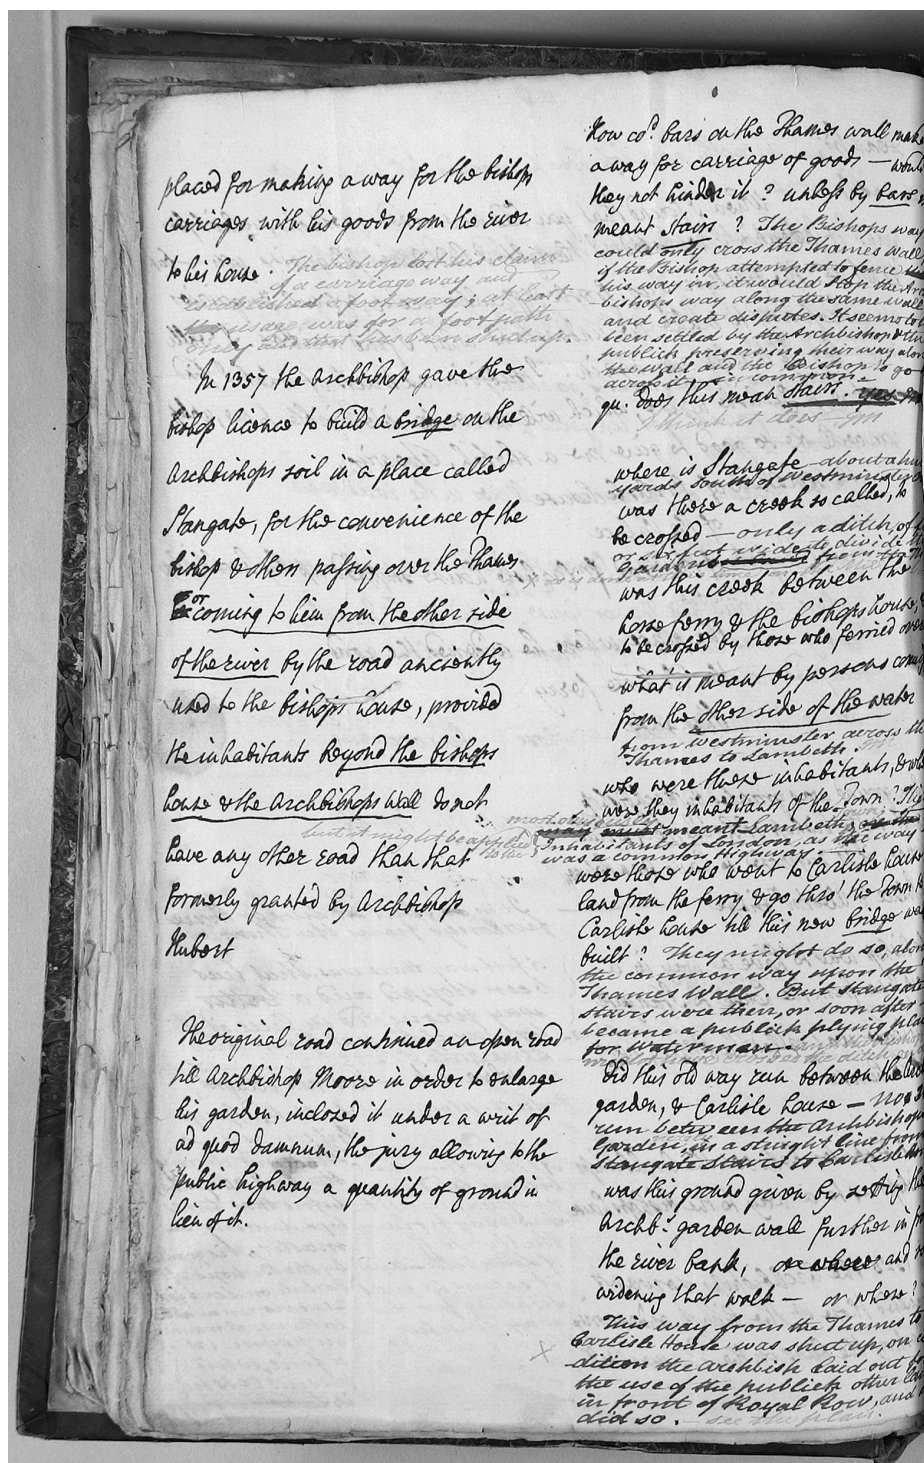 placed for making a way for the bishops
carriages with his goods from the river
to his house. The bishop lost his claim
of a carriage way and
established a foot way; at least
usage was for a foot path
only and that has been shut up.
In 1357 the Archbishop gave the
bishop licence to build a bridge on the
Archbishops soil in a place called
Stangate, for the convenience of the
bishop & others passing over the Thames
or coming to him from the other side
of the river by the road anciently
used to the bishops house, provided
the inhabitants beyond the bishops
house & the Archbishops Wall do not
but it might be applied to the
have any other road than that
formerly granted by Archbishop
Hubert
The original road continued an open road
till Archbishop Moore in order to enlarge
his garden, inclosed it under a writ of
ad quod damnum, the jury allowing to the
public highway a quantity of ground in
lieu of it.
How cod. bars on the Thames wall make
a way for carriage of goods — would
they not hinder it? unless by bars
meant Stairs? The Bishops way
could only cross the Thames Wall
if the Bishop attempted to fence
his way in, it would stop the Arch
bishops way along the same wall
and create disputes. It seems to
been settled by the Archbishop & the
publick preserving their way along
the wall and the Bishop to go
across it in common.
qu. does this mean stairs. yes
I think it does
where is Stangate about a hun
yards south of Westminster
was there a creek so called, to
be crossed — only a ditch, of
or six feet wide to divide
gardens from the
was this creek between the
horse ferry & the bishops house,
to be crossed by those who ferried over
what is meant by persons coming
from the other side of the water
from Westminster across the
Thames to Lambeth.
who were these inhabitants, &
were they inhabitants of the Town? The
may must meant Lambeth,
Inhabitants of London, as the way
was a common Highway
were those who went to Carlisle house
land from the ferry & go thro' the Town
Carlisle house till this new bridge was
built? They might do so, along
the common way upon the
Thames Wall. But Stangate
stairs were then, or soon after
became a publick plying place
for Watermen.
did this old way run between the
garden, & Carlisle house — No
run between the Archbishops
Garden, in a straight line from
Stangate Stairs to Carlisle
was this ground given by setting the
Archb.s garden wall further in from
the river bank, or where and
widening that walk — or where?
This way from the Thames to
Carlisle House was shut up, on
dition the Archbish laid out
the use of the publick other
in front of Royal Row, and
did so. — see the plan.